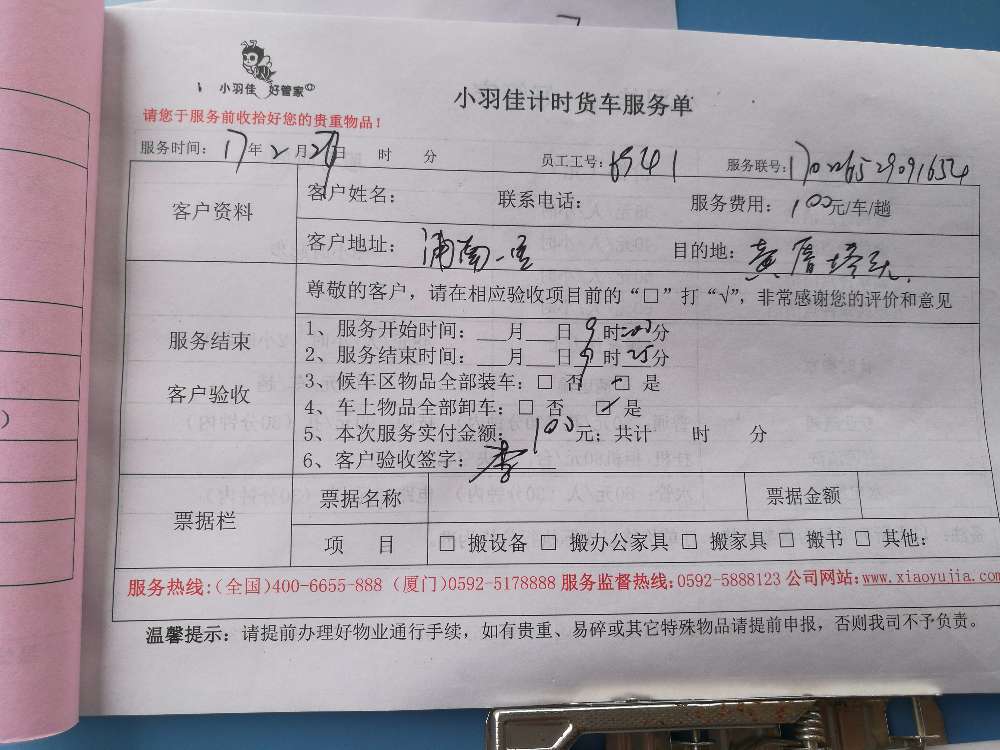 小羽佳 好管家
小羽佳计时货车服务单
请您于服务前收拾好您的贵重物品！
服务时间： 17年 2 月 27日 时 分 员工工号： 8541 服务联号：
客户资料 客户姓名： 联系电话： 服务费用： 100元/车/趟
客户地址： 浦南一 目的地： 黄厝
尊敬的客户，请在相应验收项目前的“□”打“√”，非常感谢您的评价和意见
服务结束
客户验收
1、服务开始时间：___月___日 9 时 00 分
2、服务结束时间：___月___日 9 时 25 分
3、候车区物品全部装车：□ 否 □ 是
4、车上物品全部卸车：□ 否 ☑ 是
5、本次服务实付金额：100元；共计 时 分
6、客户验收签字：李
票据栏 票据名称 票据金额
项 目 □ 搬设备 □ 搬办公家具 □ 搬家具 □ 搬书 □ 其他：
服务热线:(全国)400-6655-888 (厦门)0592-5178888 服务监督热线:0592-5888123 公司网站:www.xiaoyujia.com
温馨提示：请提前办理好物业通行手续，如有贵重、易碎或其它特殊物品请提前申报，否则我司不予负责。